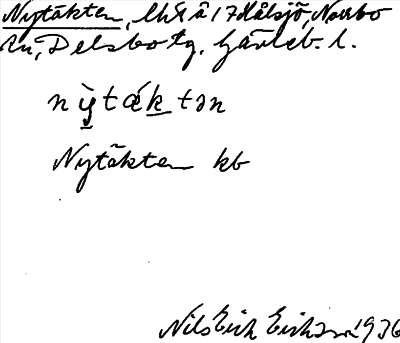 Nytäkten, lht å 17 Hålsjö, Norrbo
sn, Delsbo tg. Gävleb. l.
nỳ̠tǽk̠tən
Nytäkten kb
Nils Erik Erikson 1936